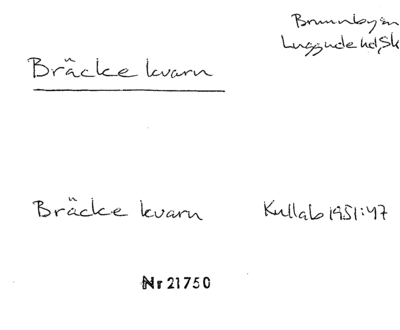 Brunnby sn
Luggude hd, Sk
Bräcke kvarn
Bräcke kvarn Kullab 1951:47
Nr 21750